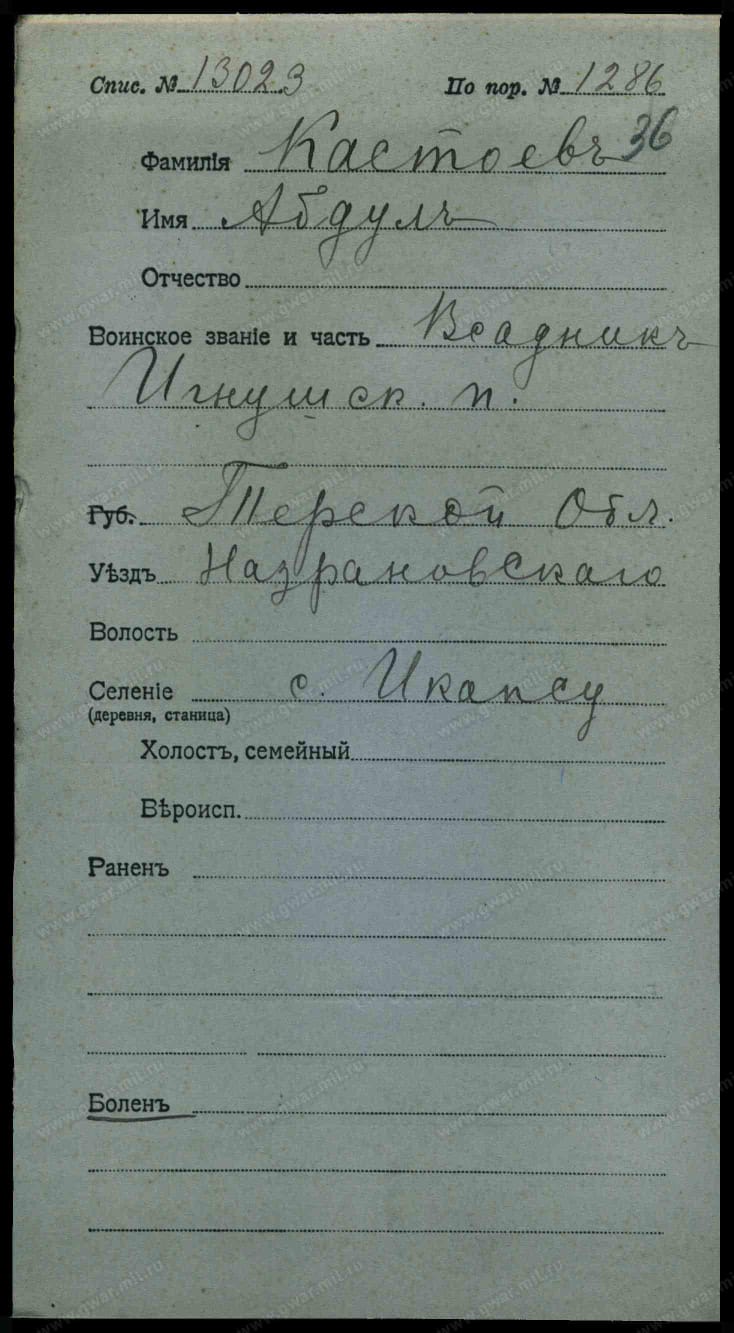 Спис. № 13023 По пор. № 1286
36
Фамилія Кастоевъ
Имя Абдулъ
Отчество
Воинское званіе и часть Всадникъ
Игнушск. п.
Губ. Терской Обл.
Уѣздъ Назрановскаго
Волость
Селеніе с. Икапсу
(деревня, станица)
Холостъ, семейный
Вѣроисп.
Раненъ
Боленъ